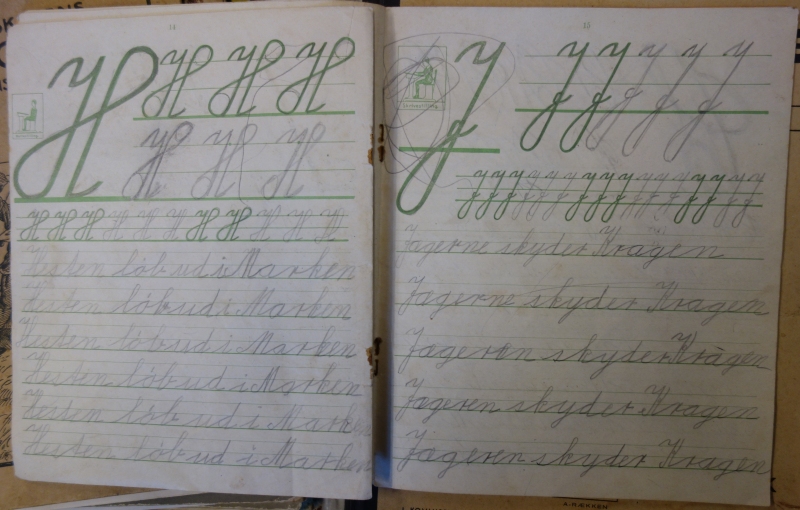 14
H H H H
H H H
H H H H H H H H H H H
Hesten löb ud i Marken
Hesten löb ud i Marken
Hesten löb ud i Marken
Hesten löb ud i Marken
Hesten löb ud i Marken
Hesten löb ud i Marken
15
J J J J J J
J J J J J J J J J J J J J J J J
Jægerne skyder Kragen
Jægerne skyder Kragen
Jægeren skyder Kragen
Jægeren skyder Kragen
Jægeren skyder Kragen